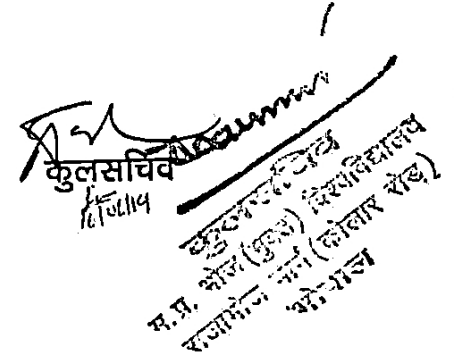 कुलसचिव
कुलसचिव
म.प्र. भोज (मुक्त) विश्वविद्यालय
राजाभोज मार्ग (कोलार रोड)
भोपाल